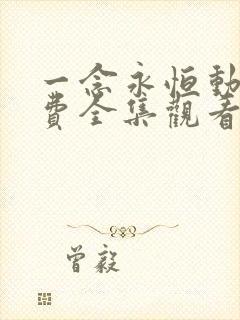 一念永恒動
費全集觀看
曾毅